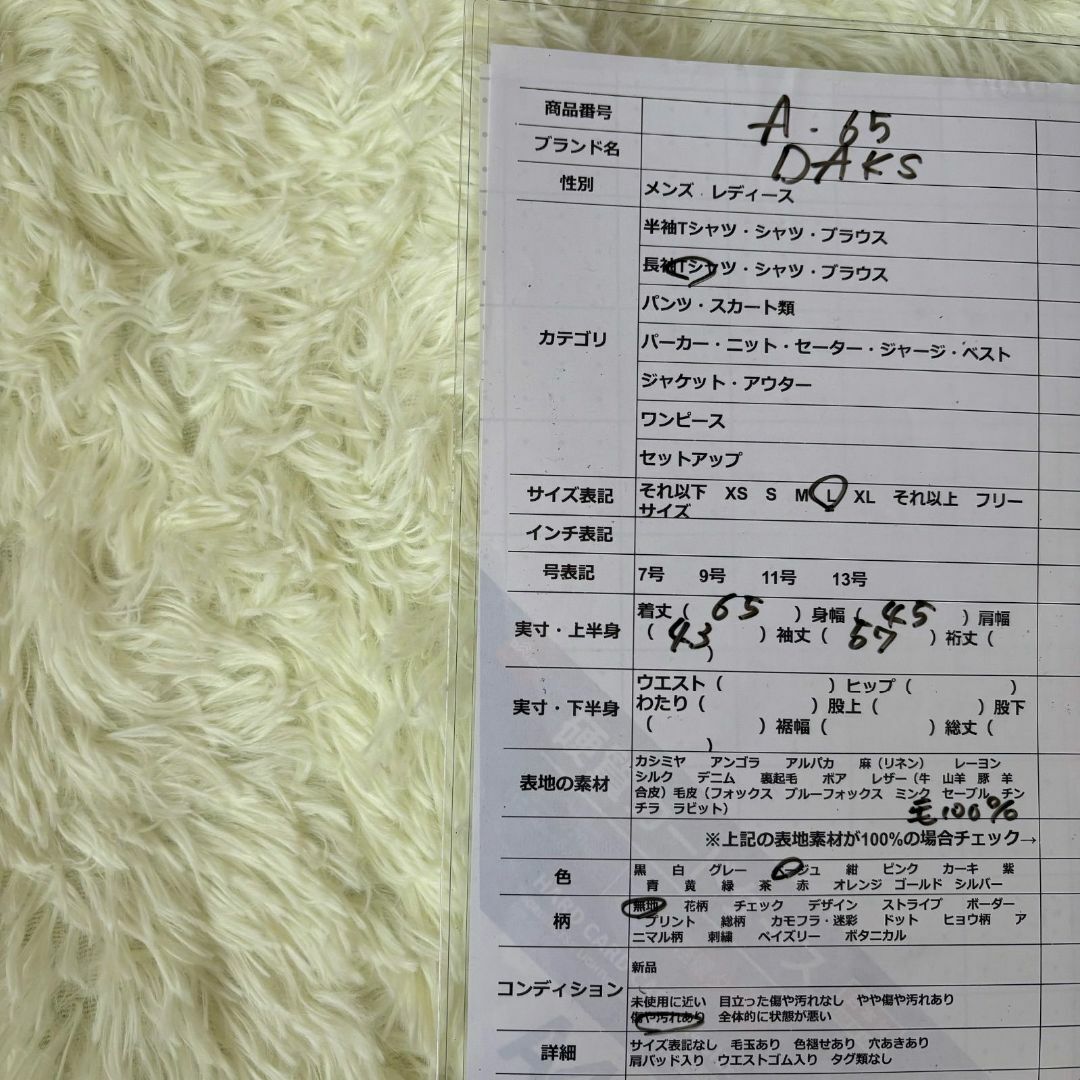 商品番号 A-65
ブランド名 DAKS
性別 メンズ レディース
半袖Tシャツ・シャツ・ブラウス
長袖Tシャツ・シャツ・ブラウス
パンツ・スカート類
カテゴリ パーカー・ニット・セーター・ジャージ・ベスト
ジャケット・アウター
ワンピース
セットアップ
サイズ表記 それ以下 XS S M L XL それ以上 フリー
サイズ
インチ表記
号表記 7号 9号 11号 13号
着丈( 65 )身幅( 45 )肩幅
実寸・上半身 ( 43 )袖丈( 57 )裄丈(
)
ウエスト( )ヒップ( )
実寸・下半身 わたり( )股上( )股下
( )裾幅( )総丈(
)
カシミヤ アンゴラ アルパカ 麻(リネン) レーヨン
表地の素材 シルク デニム 裏起毛 ボア レザー(牛 山羊 豚 羊
合皮)毛皮(フォックス ブルーフォックス ミンク セーブル チン
チラ ラビット) 毛100%
※上記の表地素材が100%の場合チェック→
色 黒 白 グレー ジュ 紺 ピンク カーキ 紫
青 黄 緑 茶 赤 オレンジ ゴールド シルバー
無地 花柄 チェック デザイン ストライプ ボーダー
柄 プリント 総柄 カモフラ・迷彩 ドット ヒョウ柄 ア
ニマル柄 刺繍 ペイズリー ボタニカル
新品
コンディション 未使用に近い 目立った傷や汚れなし やや傷や汚れあり
傷や汚れあり 全体的に状態が悪い
詳細 サイズ表記なし 毛玉あり 色褪せあり 穴あきあり
肩パッド入り ウエストゴム入り タグ類なし